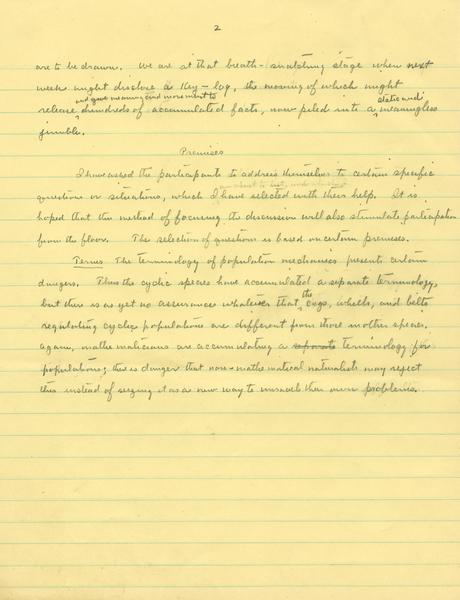 2
are to be drawn. We are at that breath-snatching stage when next
week might disclose a key-log, the moving of which might
and give meaning and movement to
release hundreds of accumulated facts, now piled into a static and meaningless
jumble.
Premises
I have asked the participants to address themselves to certain specific
questions or situations, which I have selected with their help. It is
hoped that this method of focusing the discussion will also stimulate participation
from the floor. The selection of questions is based on certain premises.
Terms The terminology of population mechanics presents certain
dangers. Thus the cyclic species have accumulated a separate terminology,
but there is as yet no assurance whatever that the cogs, wheels, and belts
regulating cyclic populations are different from those in other species.
Again, mathematicians are accumulating a separate terminology for
populations; there is danger that non-mathematical naturalists may reject
this instead of seizing it as a new way to unravel their own problems.